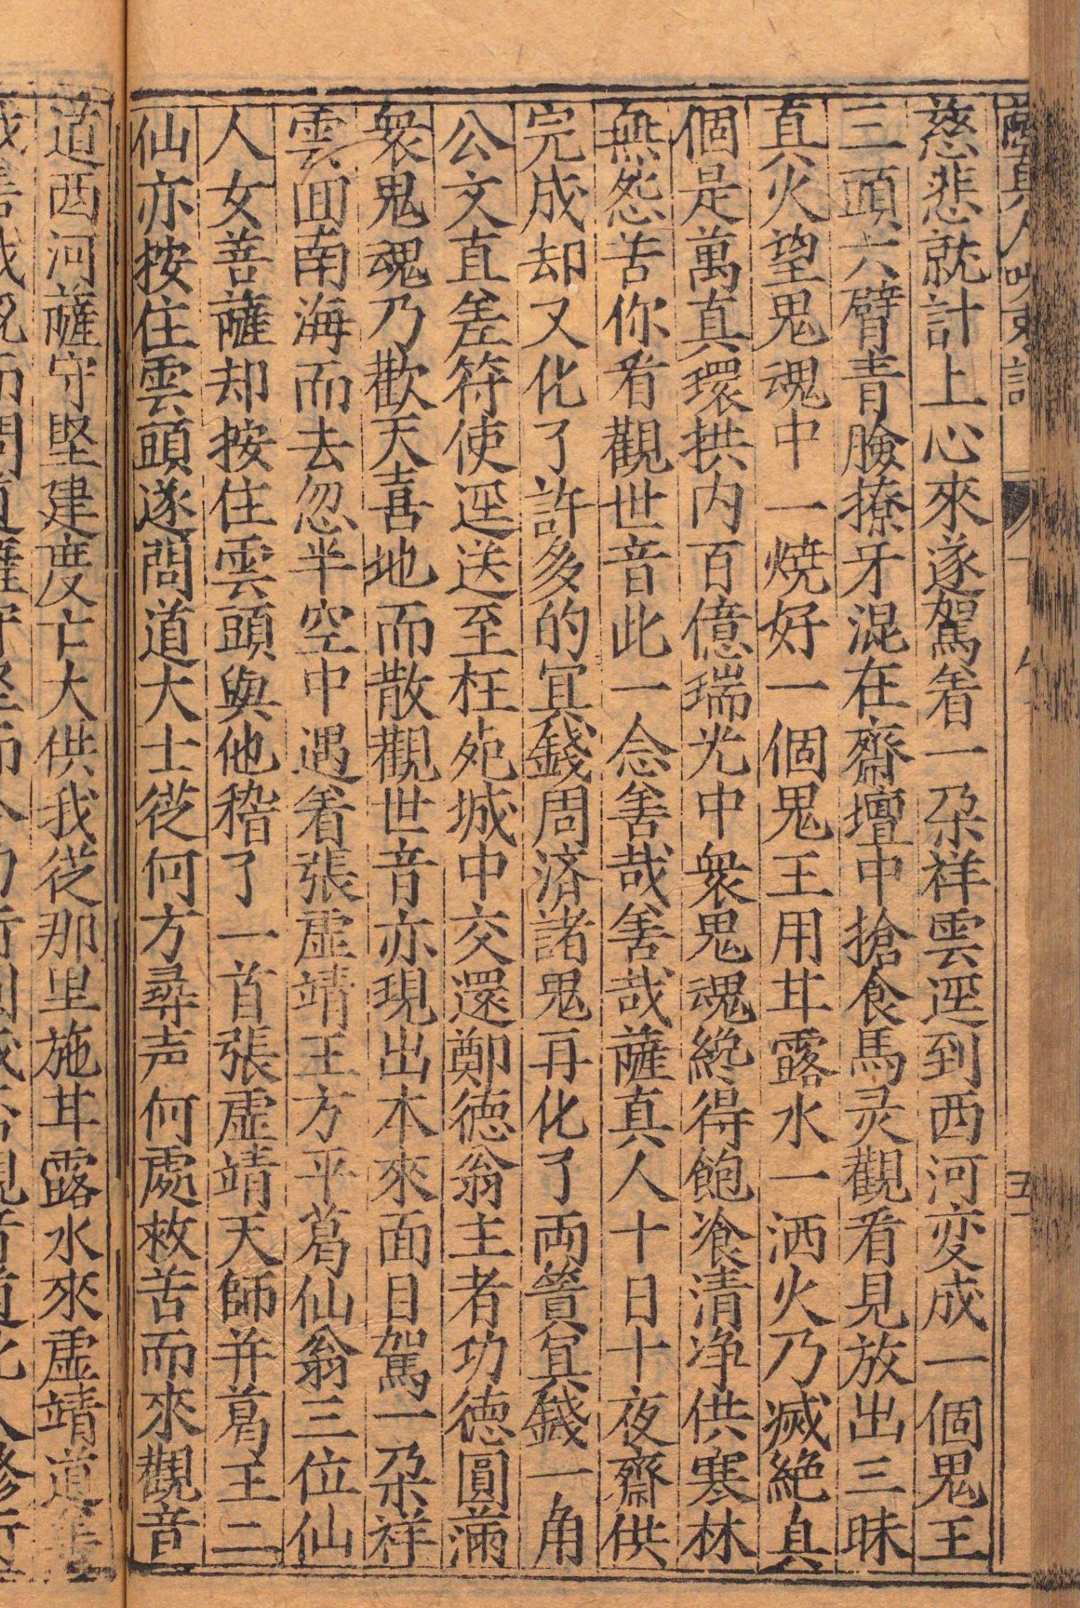 薩真人咒棗記
慈悲就計上心來遂駕着一朶祥雲逕到西河变成一個鬼王
三頭六臂青臉撩牙混在齋壇中搶食馬灵觀看見放出三昧
真火望鬼魂中一燒好一個鬼王用甘露水一洒火乃滅絶真
個是萬真環拱内百億瑞光中衆鬼魂終得飽飡清净供寒林
無怨苦你看觀世音此一念善哉善哉薩真人十日十夜齋供
完成却又化了許多的冥錢周済諸鬼再化了両簣冥錢一角
公文直差符使逕送至枉死城中交還鄭德翁主者功德圓滿
衆鬼魂乃歡天喜地而散觀世音亦現出本來面目駕一朶祥
雲囬南海而去忽半空中遇着張虚靖王方平葛仙翁三位仙
人女菩薩却按住雲頭與他稽了一首張虚靖天師并葛王二
仙亦按住雲頭遂問道大士従何方尋声何處救苦而來觀音
道西河薩守堅建度亡大供我従那里施甘露水來虚靖道